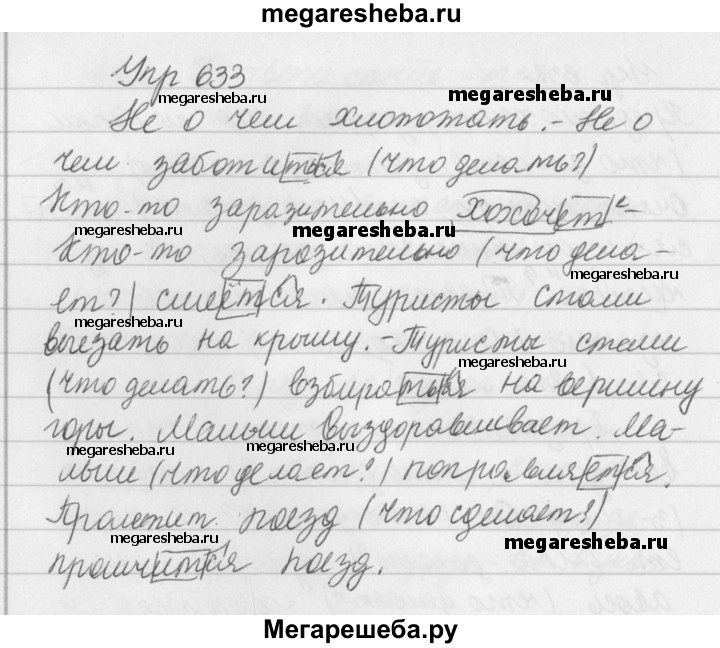 megaresheba.ru
Упр 633
megaresheba.ru
megaresheba.ru
Не о чем хлопотать. - Не о
чем заботиться (что делать?)
megaresheba.ru
Кто-то заразительно хохочет² -
megaresheba.ru
Кто-то заразительно (что дела-
megaresheba.ru
ет?) смеётся. Туристы стали
megaresheba.ru
влезать на крышу. - Туристы стали
megaresheba.ru
(что делать?) взбираться на вершину
горы. Малыш выздоравливает. Ма-
megaresheba.ru
megaresheba.ru
лыш (что делает?) поправляется.
Пролетит поезд (что сделает?)
megaresheba.ru
megaresheba.ru
промчится поезд.
Мегарешеба.ру